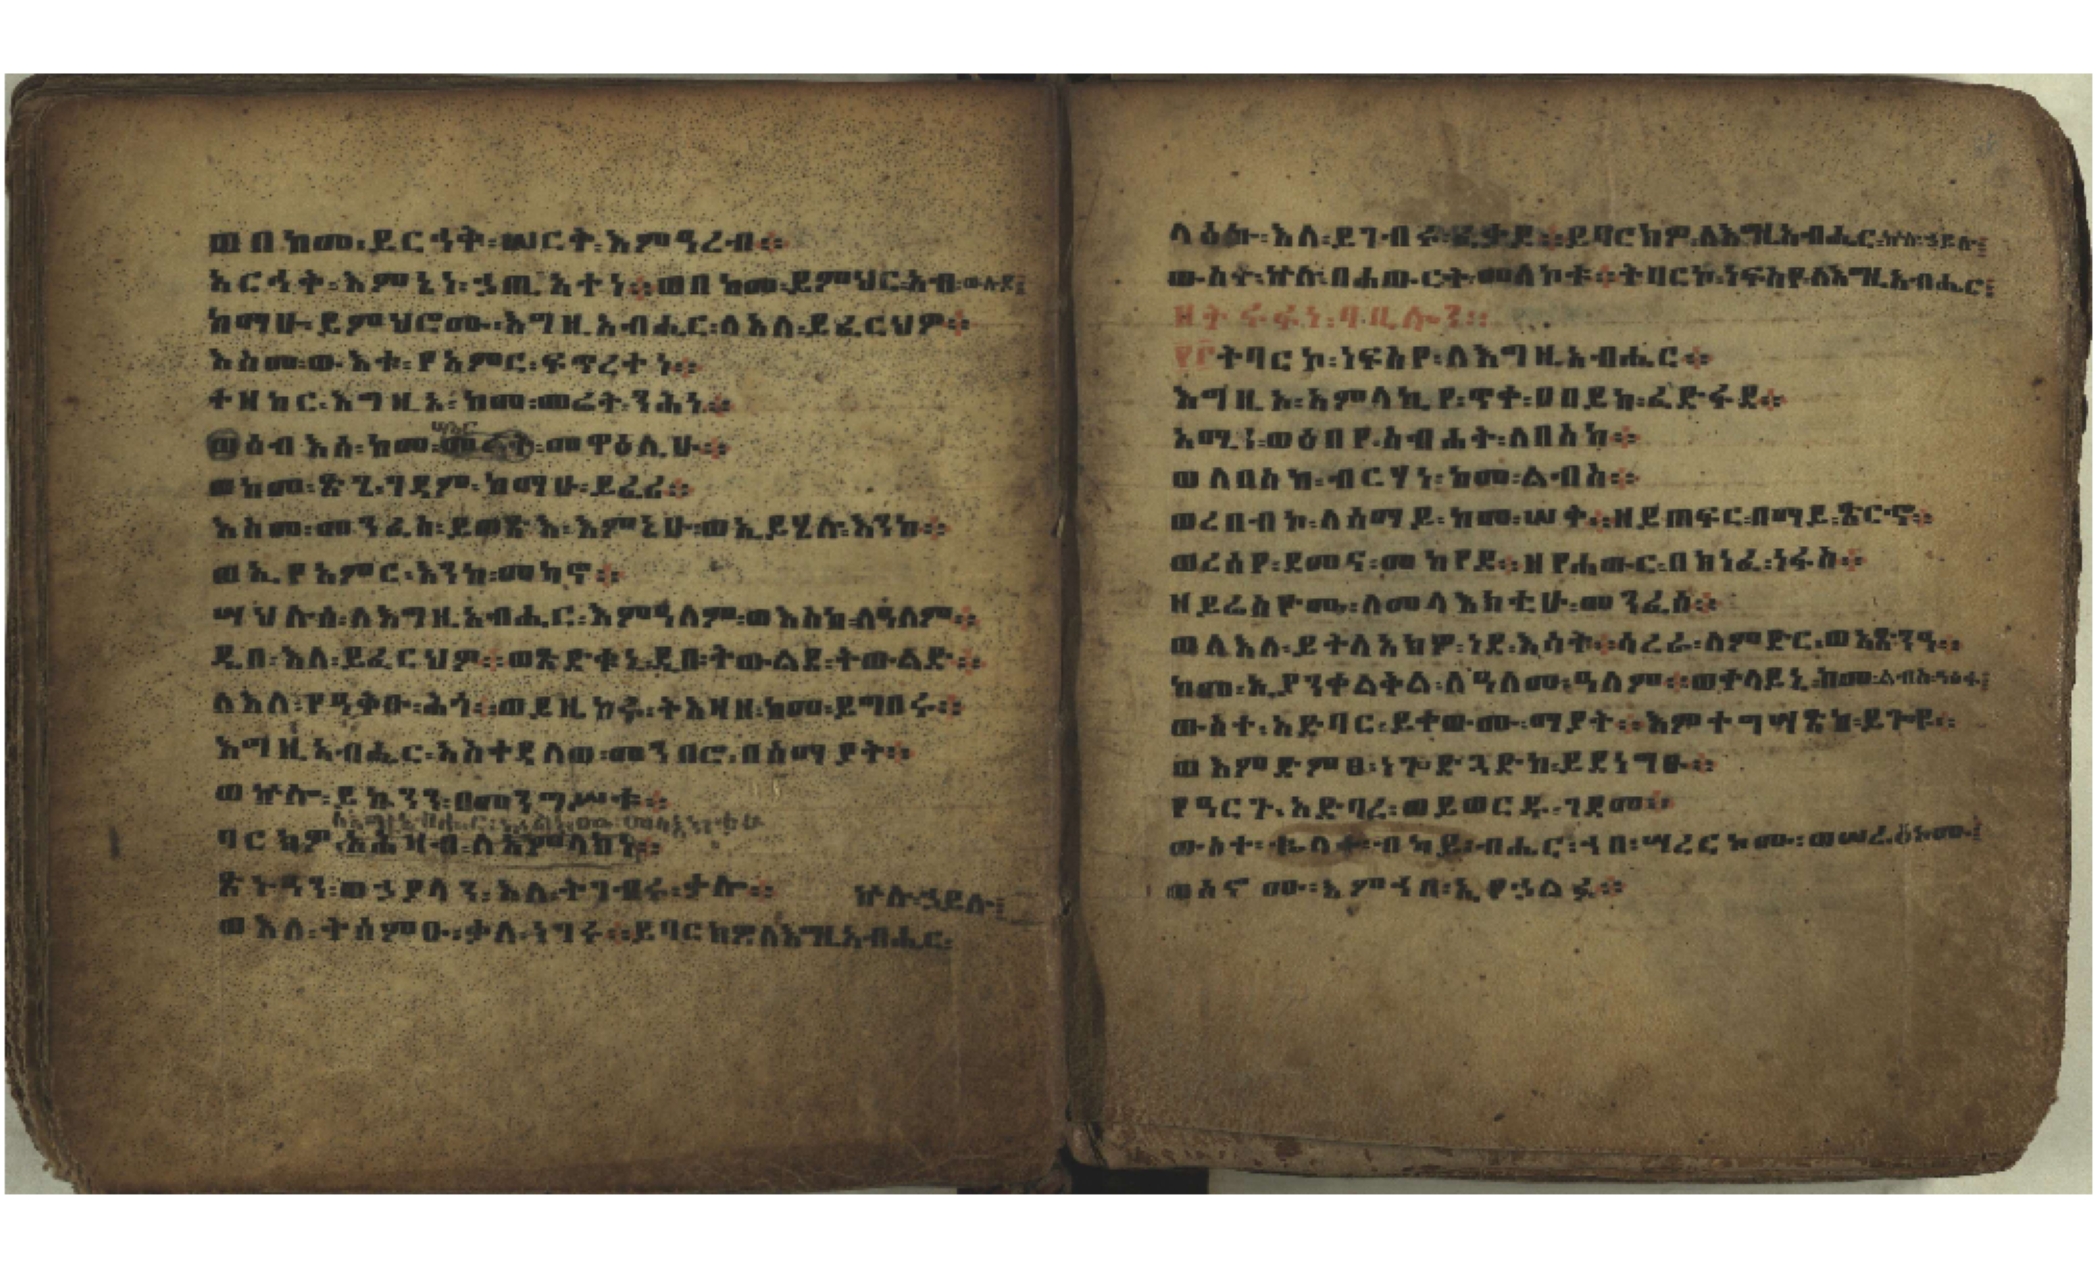 ወበከመ፡ይርኅቅ፡ሠርቅ፡እምዓረብ።
አርኀቀ፡እምኔነ፡ኃጢአተነ።ወበከመ፡ይምህር፡አብ፡ውሉዶ፤
ከማሁ፡ይምህሮሙ፡እግዚአብሔር፡ለእለ፡ይፈርህዎ።
እስመ፡ውእቱ፡የአምር፡ፍጥረተነ።
ተዘከር፡እግዚኦ፡ከመ፡መሬት፡ንሕነ።
ወዕብእሰ፡ከመ፡ሣዕር፡መዋዕሊሁ።
ወከመ፡ጽጌ፡ገዳም፡ከማሁ፡ይፈሪ።
እስመ፡መንፈስ፡ይወጽእ፡እምኔሁ፡ወኢይሄሉ፡እንከ።
ወኢየአምር፡እንከ፡መካኖ።
ሣህሉሰ፡ለእግዚአብሔር፡እምዓለም፡ወእስከ፡ለዓለም።
ዲበ፡እለ፡ይፈርህዎ።ወጽድቁኒ፡ዲበ፡ትውልደ፡ትውልድ።
ለእለ፡የዓቅቡ፡ሕጎ።ወይዚከሩ፡ትእዛዘ፡ከመ፡ይግበሩ።
እግዚአብሔር፡አስተዳለወ፡መንበሮ፡በሰማያት።
ወኵሎ፡ይኴንን፡በመንግሥቱ።
ለእግዚአብሔር፡ኵልክሙ፡መላእክቲሁ
ባርክዎ፡አሕዛብ፡ለአምላክነ።
ጽኑዓን፡ወኃያላን፡እለ፡ትገብሩ፡ቃሎ።
ኵሉ፡ኃይሉ፤
ወእለ፡ትሰምዑ፡ቃለ፡ነገሩ።ይባርክዎ፡ለእግዚአብሔር፡
ላዕኩ፡እለ፡ይገብሩ፡ፈቃዶ።ይባርክዎ፡ለእግዚአብሔር፡ኵሉ፡ኃይሉ፤
ውስተ፡ኵሉ፡በሐውርት፡መለኮቱ።ትባርኮ፡ነፍስየ፡ለእግዚአብሔር፤
ዘትሩፋነ፡ባቢሎን።
፻፫ትባርኮ፡ነፍስየ፡ለእግዚአብሔር።
እግዚኦ፡አምላኪየ፡ጥቀ፡ዐበይከ፡ፈድፋደ።
አሚነ፡ወዕበየ፡ስብሐት፡ለበስከ።
ወለበስከ፡ብርሃነ፡ከመ፡ልብስ።
ወረበብኮ፡ለሰማይ፡ከመ፡ሠቀ።ዘይጠፍር፡በማይ፡ጽርኆ።
ወረሰየ፡ደመና፡መከየዶ።ዘየሐውር፡በክነፈ፡ነፋስ።
ዘይሬስዮሙ፡ለመላእክቲሁ፡መንፈስ።
ወለእለ፡ይትለአክዎ፡ነደ፡እሳት።ሳረራ፡ለምድር፡ወአጽንዓ።
ከመ፡ኢያንቀልቅል፡ለዓለመ፡ዓለም።ወቀላይኒ፡ከመ፡ልብስ፡ዓጽፋ፤
ውስተ፡አድባር፡ይቀውሙ፡ማያት።እምተግሣጽከ፡ይጐዩ።
ወእምድምፀ፡ነጐድጓድከ፡ይደነግፁ።
የዓርጉ፡አድባረ፡ወይወርዱ፡ገዳመ።
ውስተ፡ብሔር፡ኀበ፡ሣረርኮሙ፡ወሠራዕኮሙ፤
ወሰኖሙ፡እምኀበ፡ኢየኃልፉ።